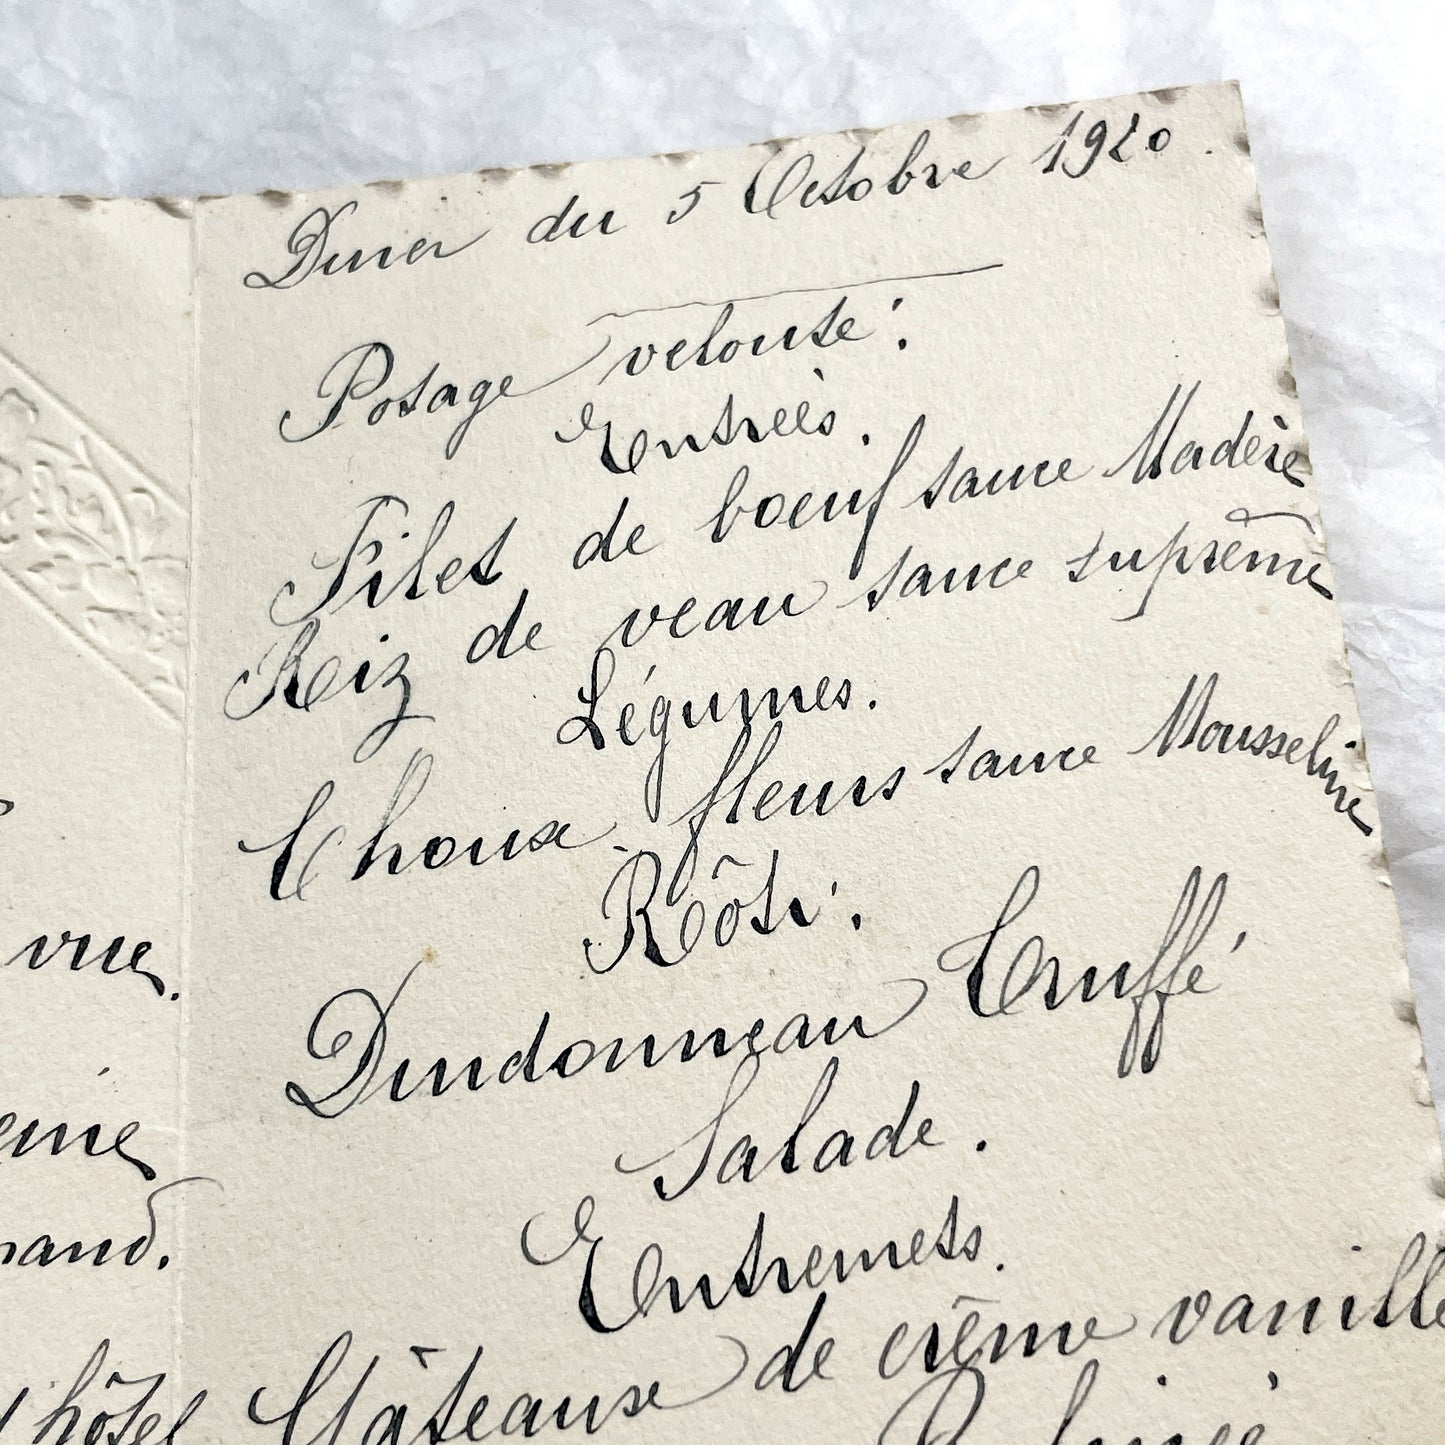 vue.
Diner du 5 Octobre 1920.
Potage velouté.
Entrèés.
Filet de boeuf sauce Madère
Reiz de veau sauce suprême
Légumes.
Choux-fleurs sauce Mousseline
Rôti.
Dindonneau Truffé
Salade.
Entremets.
Gâteaux de crème vanille
hôtel